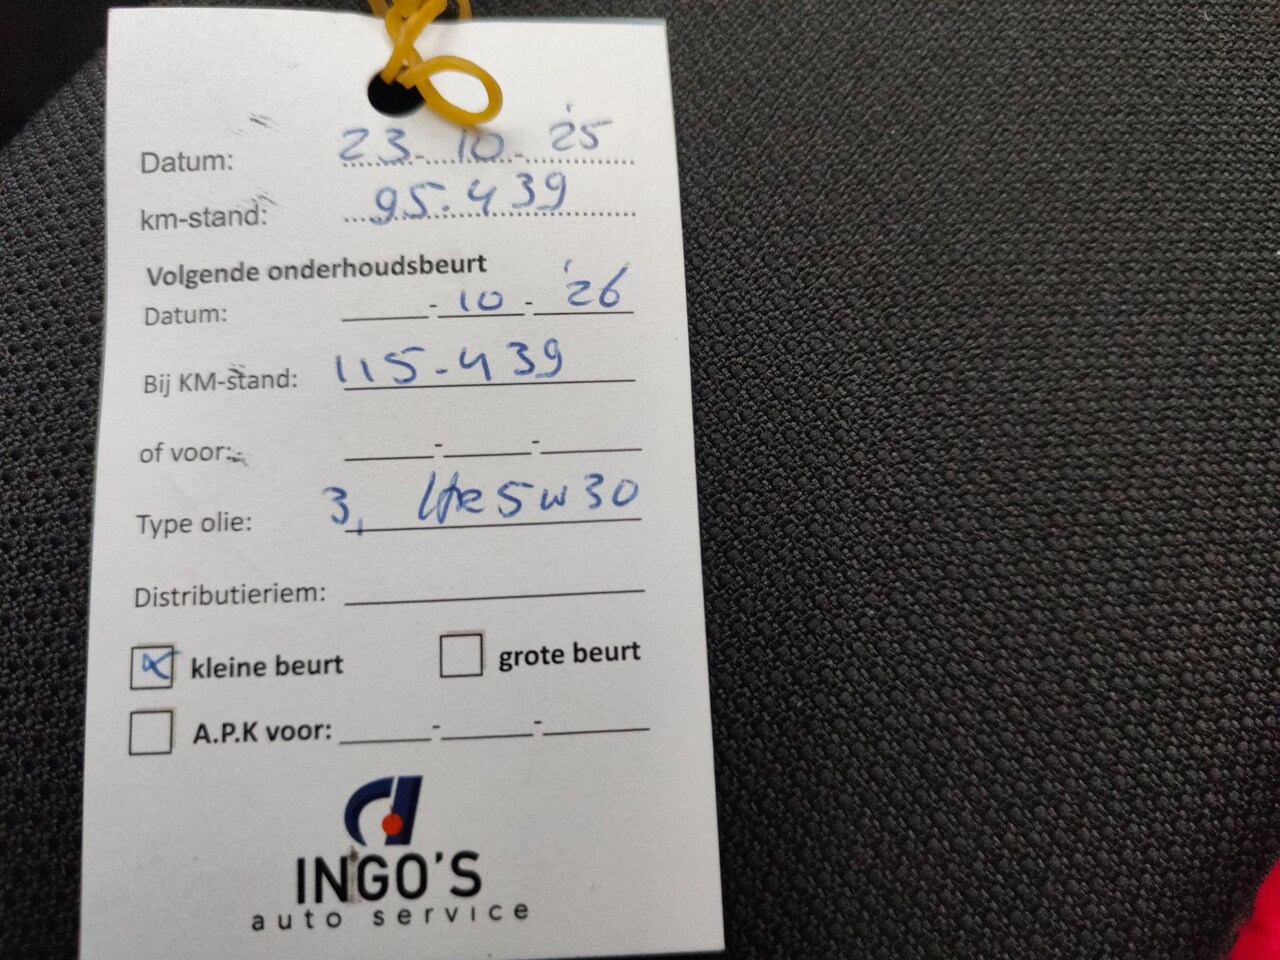 Datum: 23-10-'25
km-stand: 95.439
Volgende onderhoudsbeurt
Datum: -10-'26
Bij KM-stand: 115-439
of voor: - -
Type olie: 3, ltr 5w30
Distributieriem:
kleine beurt grote beurt
A.P.K voor: - -
INGO'S
auto service